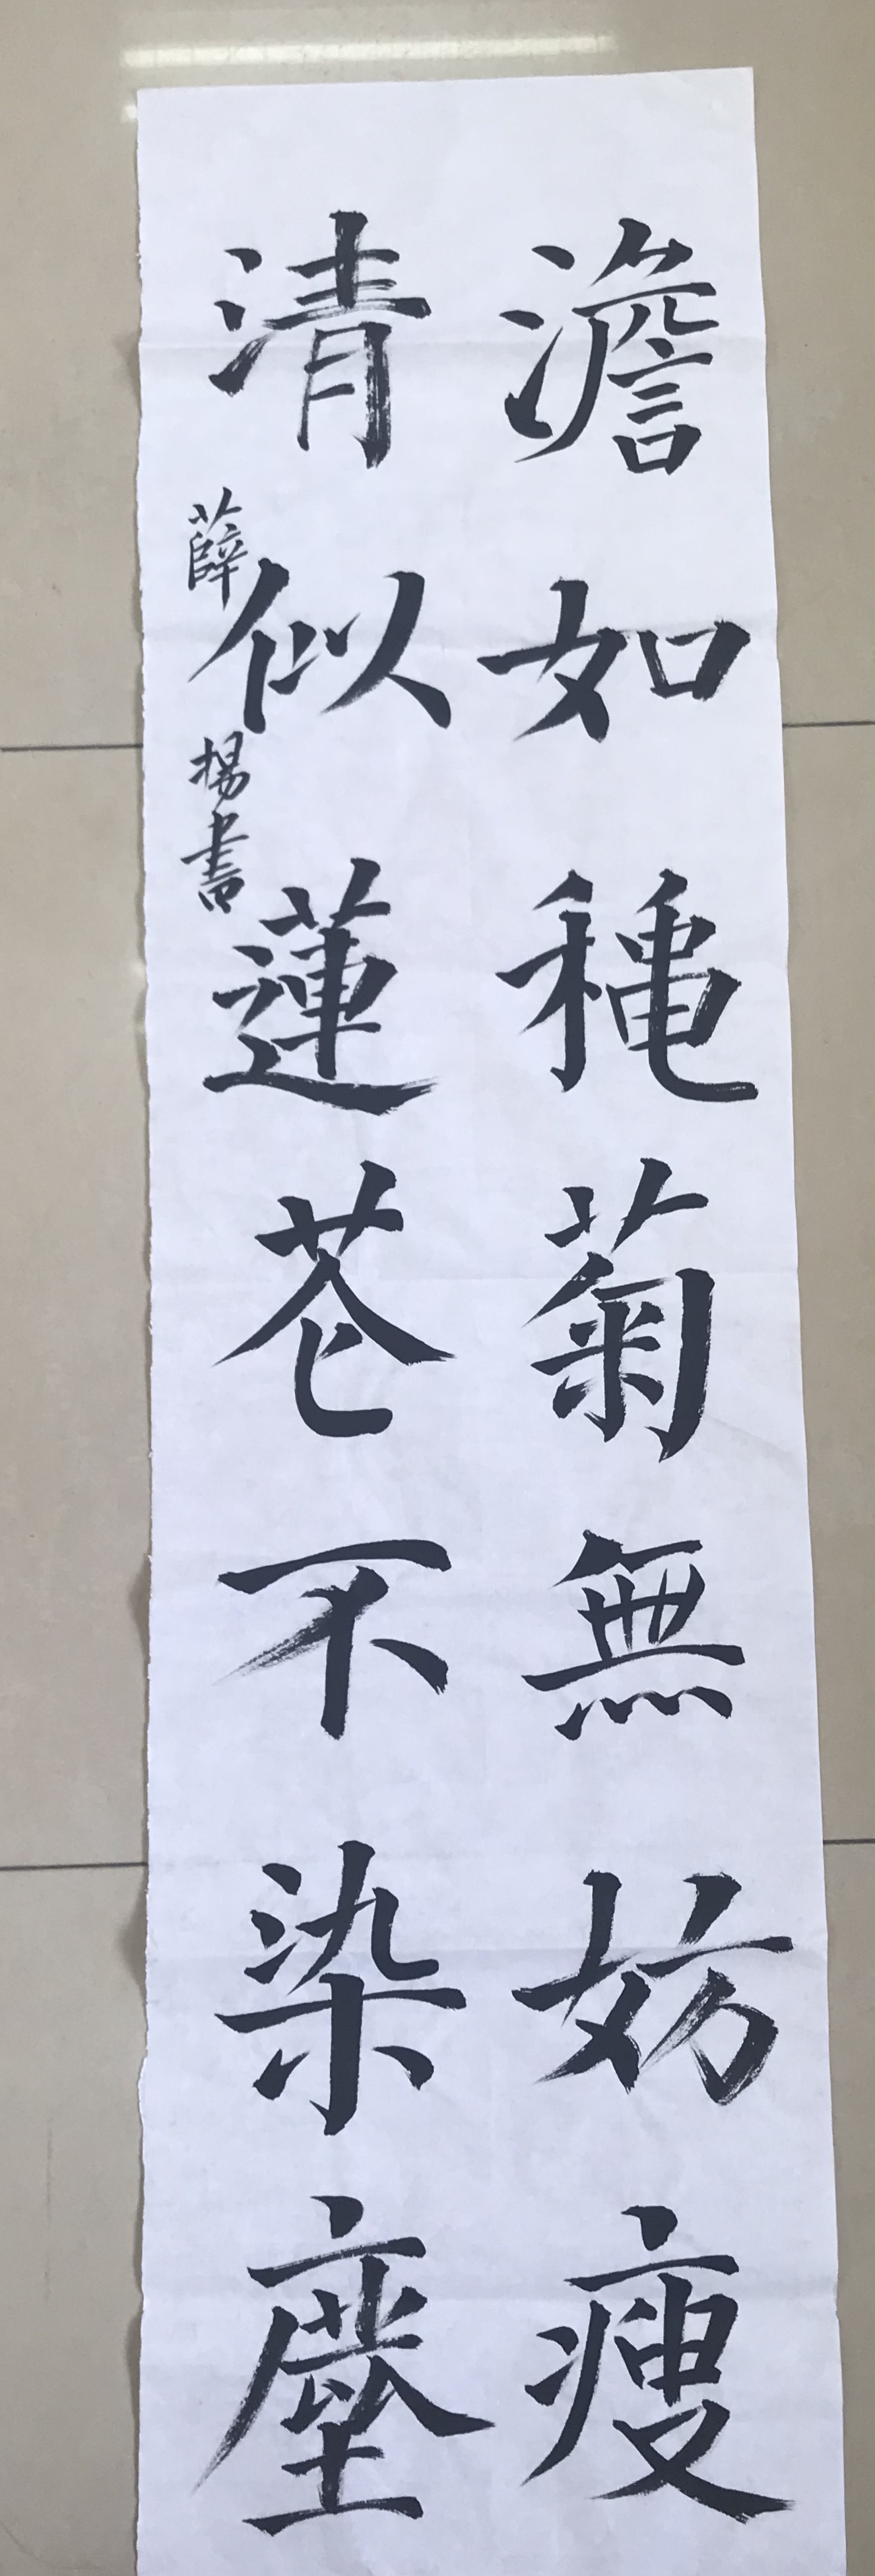 澹如穐菊無妨瘦
清似蓮花不染塵
薛揚書